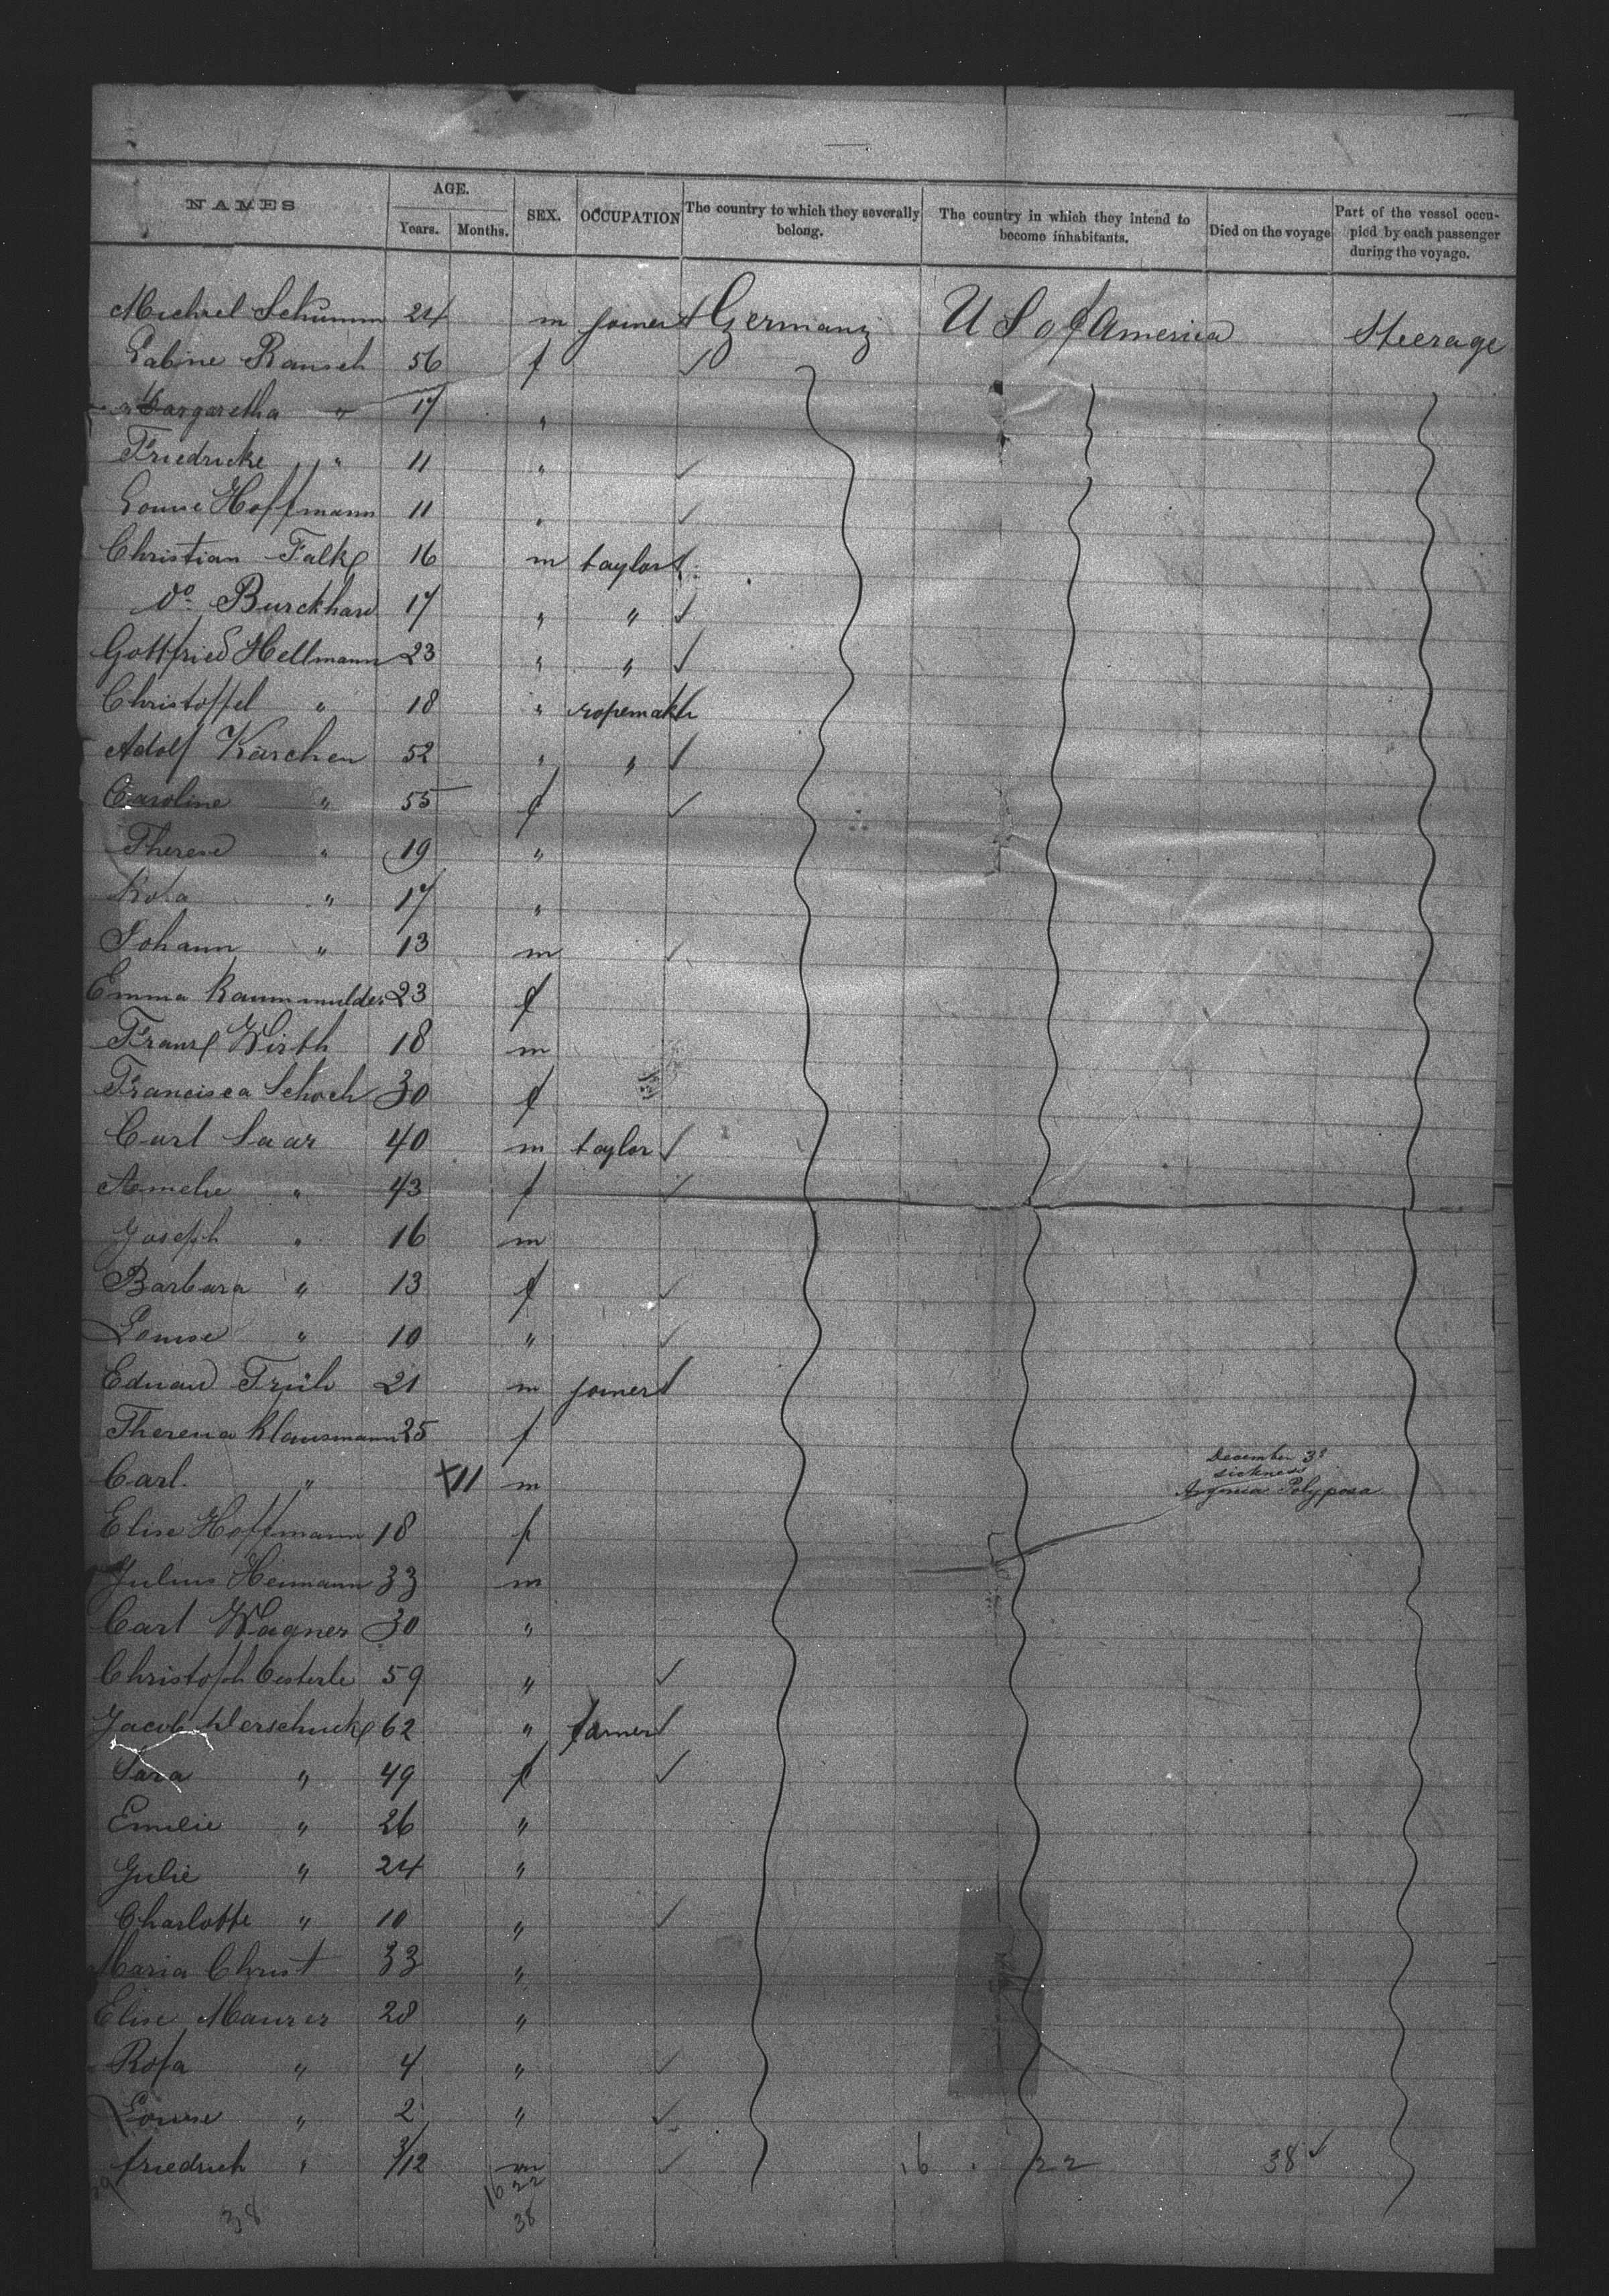 NAMES AGE. Years. Months. SEX. OCCUPATION The country to which they severally belong. The country in which they intend to become inhabitants. Died on the voyage Part of the vessel occupied by each passenger during the voyage.
Michael Schumm 24 m joiner Germany U S of America Steerage
Sabine Rausch 56 f ✓
Margaretha " 17 "
Friedricke " 11 " ✓
Louise Hoffmann 11 " ✓
Christian Falk 16 m taylor ✓
do Burckhard 17 " " ✓
Gottfried Hellmann 23 " " ✓
Christoffel " 18 " ropemak
Adolf Kärchen 52 " " ✓
Caroline " 55 f ✓
Therese " 19 "
Rosa " 17 "
Johann " 13 m ✓
Emma 23 f
Franz Wirth 18 m
Francisca Schoch 30 f
Carl Saar 40 m taylor ✓
Amelie " 43 f ✓
Joseph " 16 m
Barbara " 13 f ✓
Louise " 10 " ✓
Eduard Früh 21 m joiner ✓
Theresia Klausmann 25 f
Carl " X 11 m December 3d sickness Polyposa
Elise Hoffmann 18 f
Julius Heimann 33 m
Carl Wagner 30 "
Christoph Oesterle 59 " ✓
Jacob 62 " farmer ✓
Sara " 49 f ✓
Emilie " 26 "
Julie " 24 "
Charlotte " 10 " ✓
Maria Christ 33 "
Elise Maurer 28 "
Rosa " 4 " ✓
Louise " 2 " ✓
friedrich " 3/12 m ✓ 16 22 38 ✓
16 22
38 38